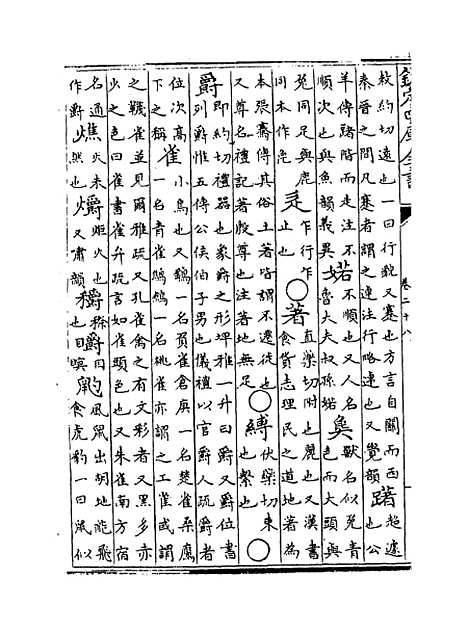 欽定四庫全書 卷二十八
敕約切遠也一曰行皃又蹇也方言自關而西秦晉之間凡蹇者謂之逴注行略逴也又覺韻 躇 超遽也公
羊傳躇階而走注不順次也與魚韻義異 婼 不順也又人名魯大夫叔孫婼 㲋 獸名似兔青色而大頭與
兔同足與鹿同本作㲋 辵 乍行乍止也○著 直藥切附也麗也又漢書食貨志理民之道地著為
本張騫傳其俗土著皆謂不遷徙也又尊名禮記著殷尊也注著地無足○縛 伏藥切束也繫也○
爵 即約切禮器也象爵之形坪雅一升曰爵又爵位書列爵惟五傳公侯伯子男也儀禮以官爵人疏爵者
位次高下之稱 雀 小鳥也又鷃一名頁雀倉庚一名楚雀桑鳸一名青雀鷦鷯一名桃雀亦謂之工雀或謂
之韈雀並見爾雅疏又孔雀禽之有文彩者又黑多亦少之色曰雀書雀弁疏言如雀頭色也又朱雀南方宿
名通作爵 燋 火未然也 爝 炬火也又肅韻 穱 目冥也 䶂 風鼠出胡地能飛食虎豹一曰鼠似